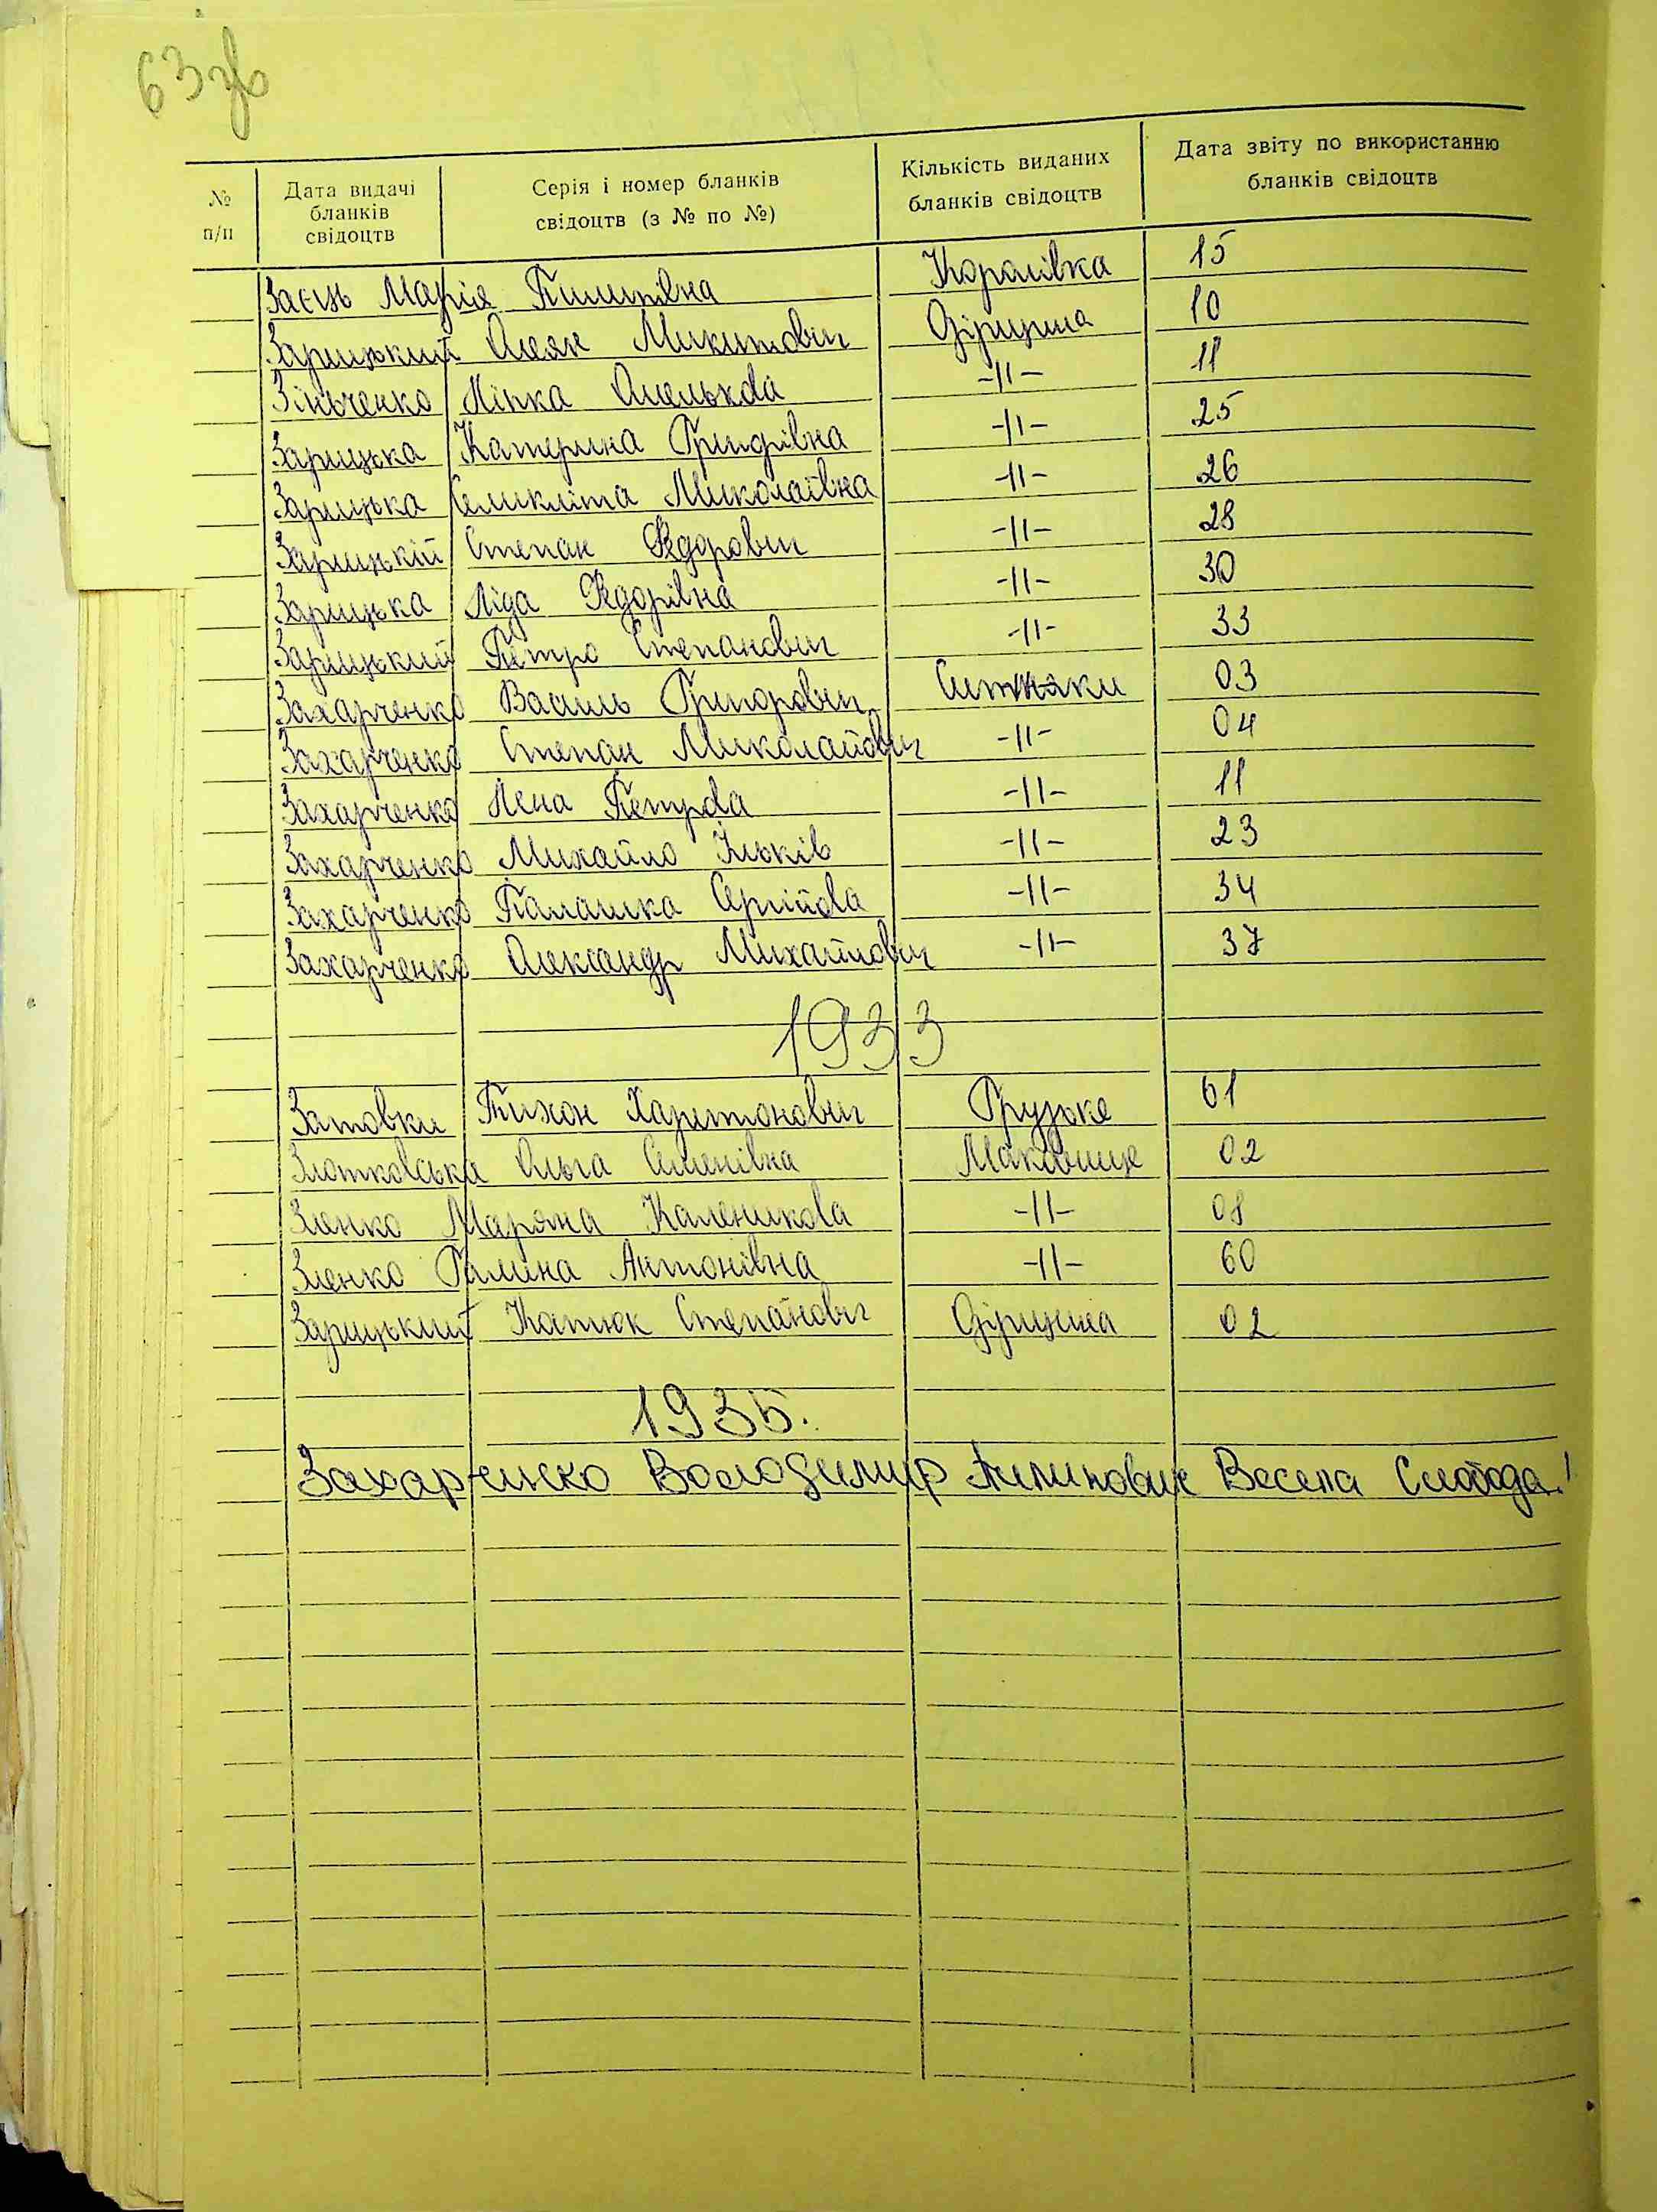 63 зв
№ п/п | Дата видачі бланків свідоцтв | Серія і номер бланків свідоцтв (з № по №) | Кількість виданих бланків свідоцтв | Дата звіту по використанню бланків свідоцтв
Заєць Марія Пилипівна Королівка 15
Зарицький Микитович Діриина 10
Зінченко Мінка Омелькова -||- 11
Зарицька Катерина Григорівна -||- 25
Зарицька Миколаївна -||- 26
Зарицькій Степан Федорович -||- 28
Зарицька Ліда Федорівна -||- 30
Зарицький Петро Степанович -||- 33
Захарченко Василь Григорович Ситняки 03
Захарченко Степан Миколайович -||- 04
Захарченко Лена Петрова -||- 11
Захарченко Михайло Ільків -||- 23
Захарченко Палашка Сергійова -||- 34
Захарченко Олександр Михайлович -||- 37
1933
Затовки Тихон Харитонович Грузьке 61
Злотковська Ольга Семенівна Маковище 02
Зленко Маряна Каленикова -||- 08
Зленко Галина Антонівна -||- 60
Зарицький Степанович 02
1935.
Захарченко Володимир Пилипович Весела Слобода!